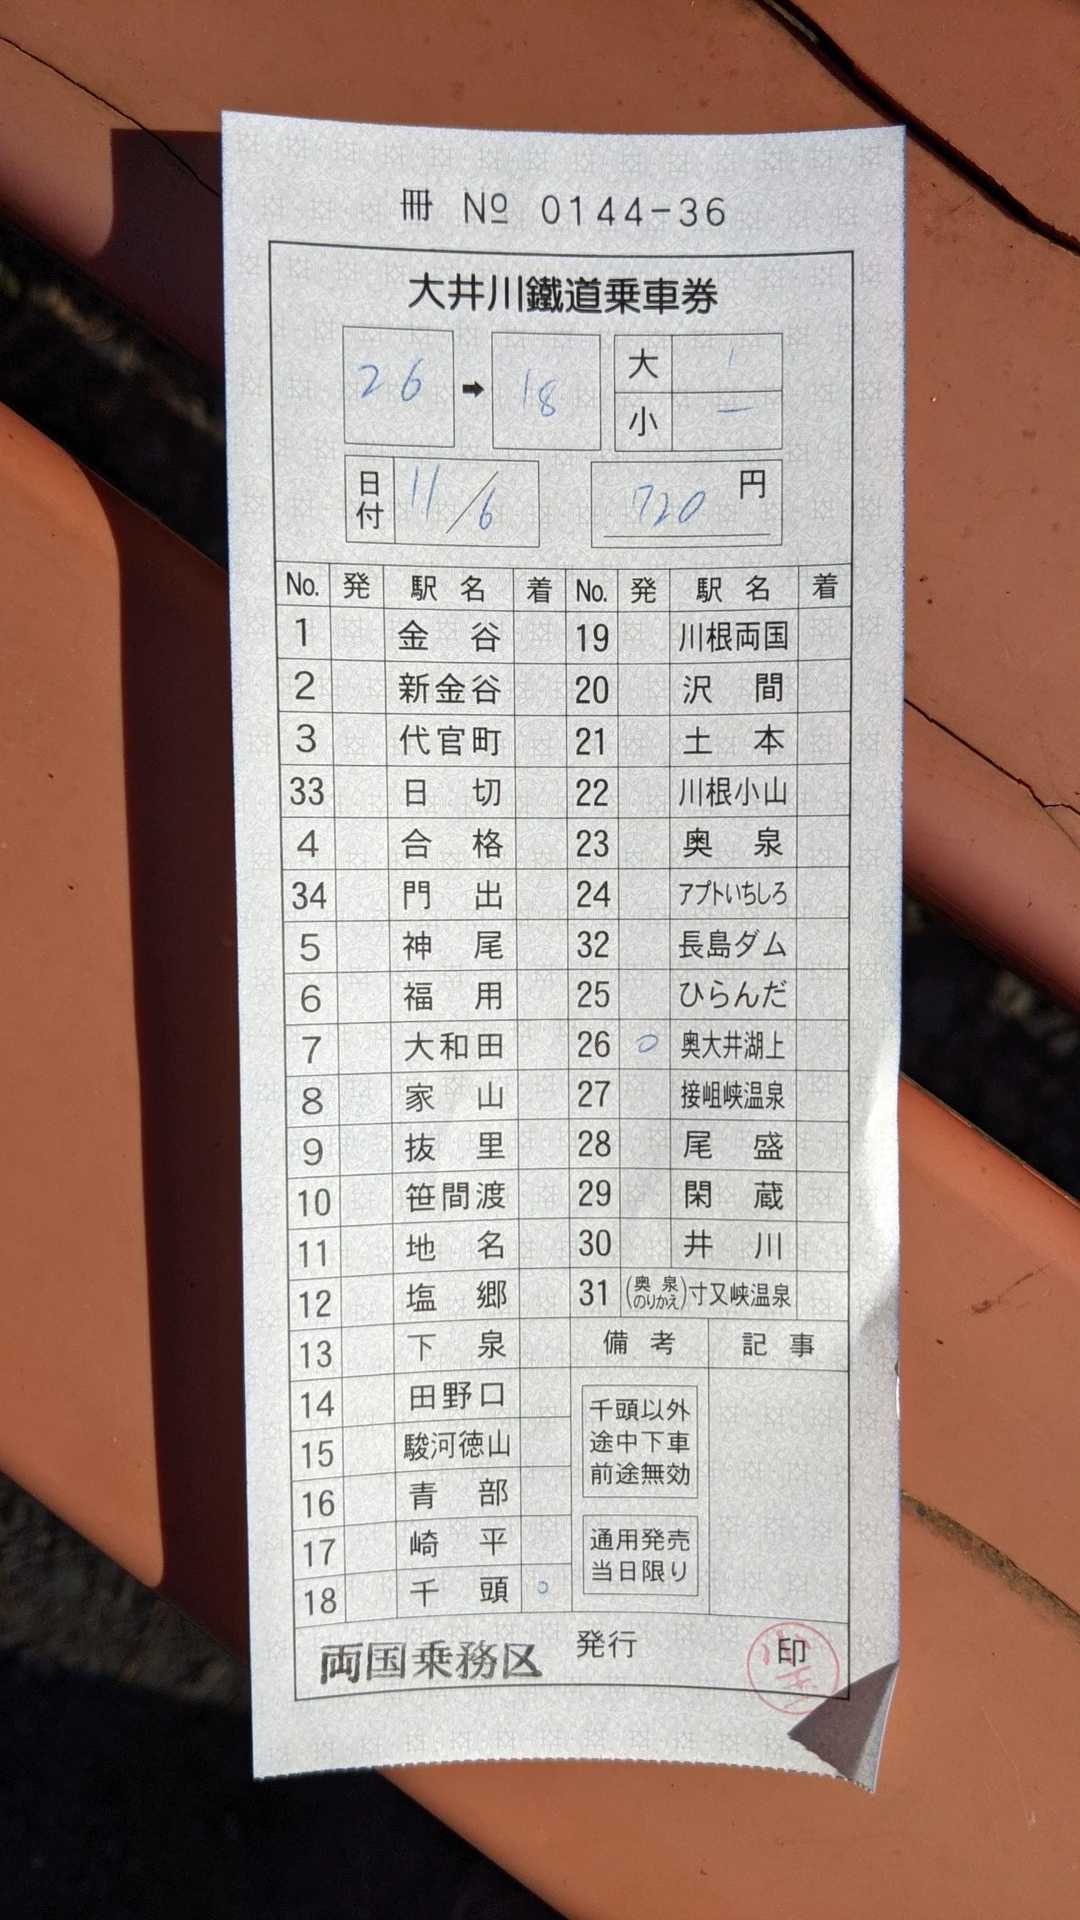 冊 № 0144-36
大井川鐵道乗車券
26 ➡ 18
大 1
小 ー
日付 11/6
720 円
No. 発 駅名 着 No. 発 駅名 着
1 金谷 19 川根両国
2 新金谷 20 沢間
3 代官町 21 土本
33 日切 22 川根小山
4 合格 23 奥泉
34 門出 24 アプトいちしろ
5 神尾 32 長島ダム
6 福用 25 ひらんだ
7 大和田 26 ○ 奥大井湖上
8 家山 27 接岨峡温泉
9 抜里 28 尾盛
10 笹間渡 29 閑蔵
11 地名 30 井川
12 塩郷 31 (奥泉のりかえ)寸又峡温泉
13 下泉 備考 記事
14 田野口
15 駿河徳山
16 青部
17 崎平
18 千頭 ○
千頭以外
途中下車
前途無効
通用発売
当日限り
両国乗務区 発行 印